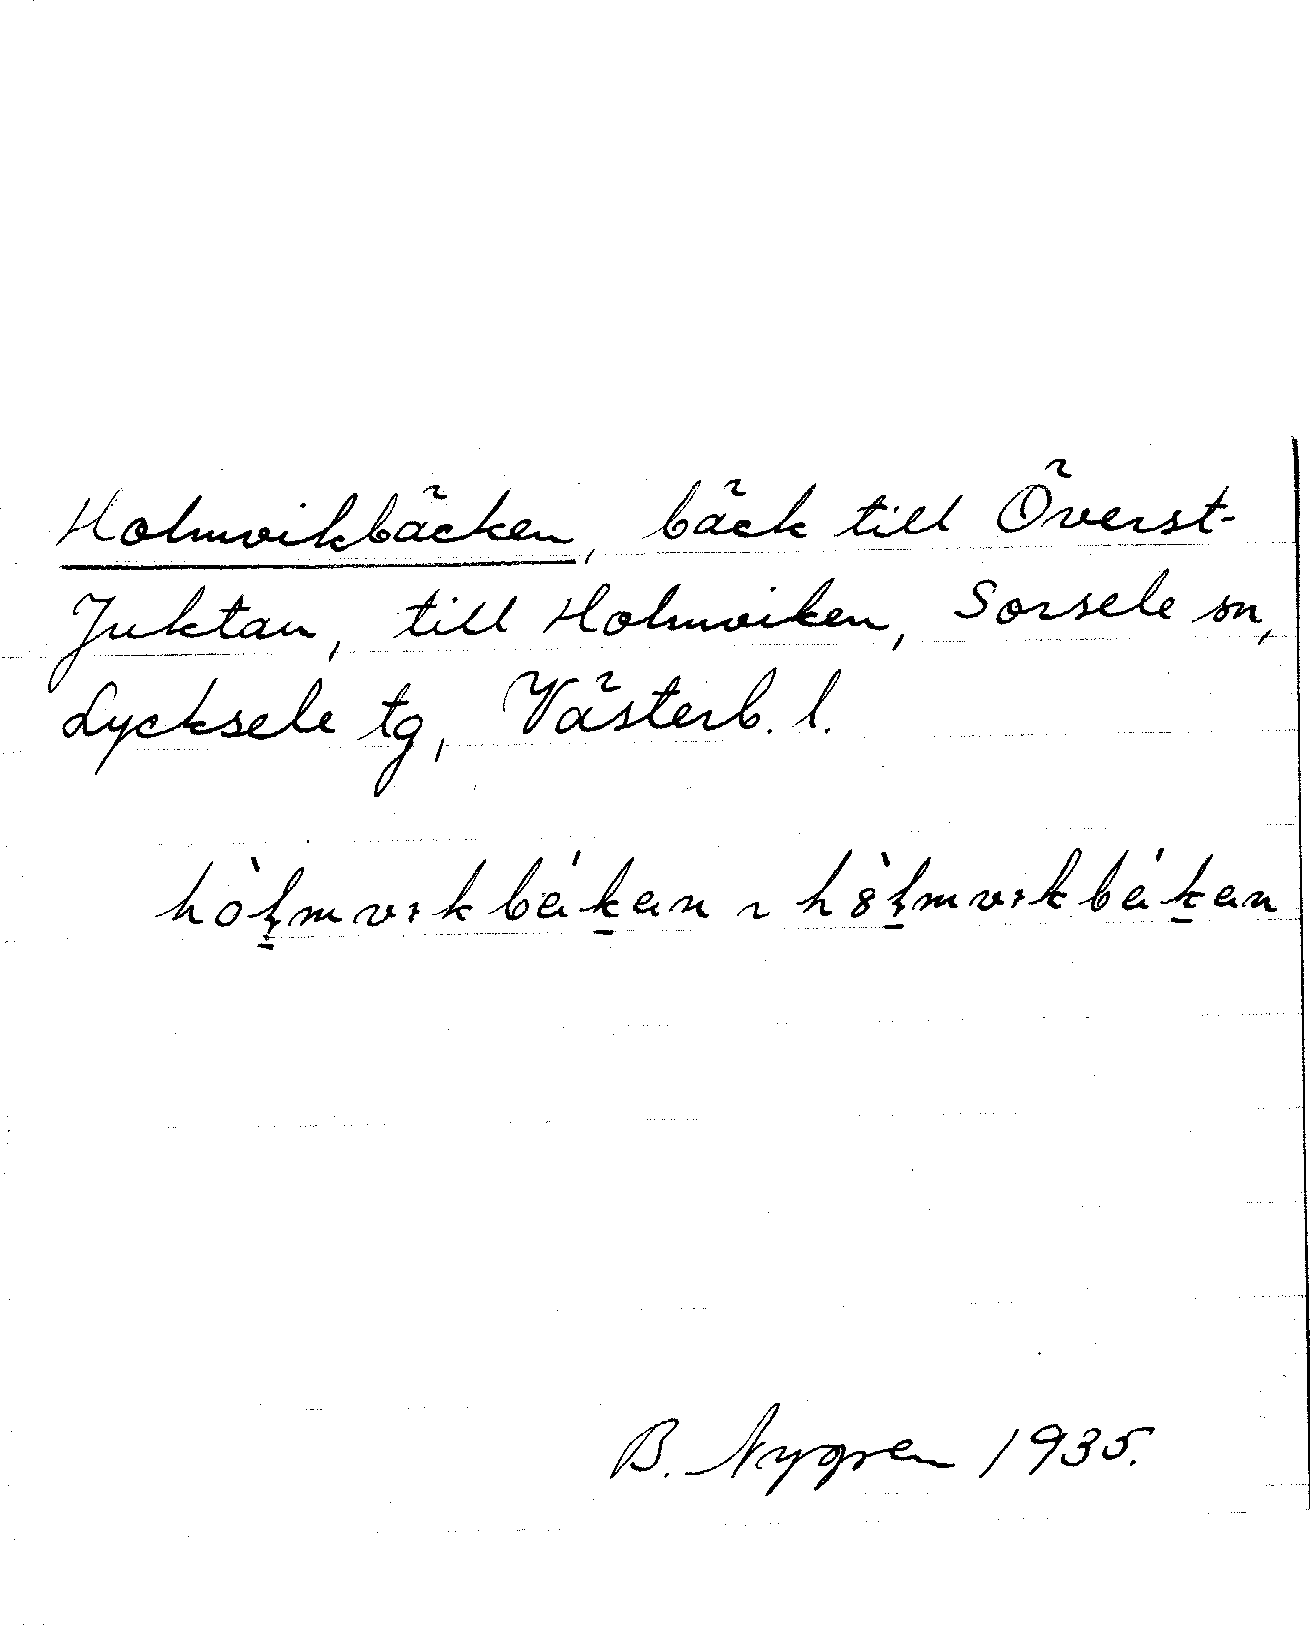 Holmvikbäcken, bäck till Överst-
Juktan, till Holmviken, Sorsele sn,
Lycksele tg, Västerb. l.
B. Nygren 1935.